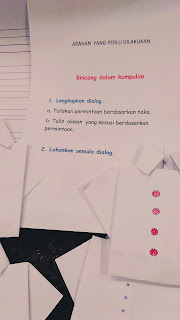 ARAHAN YANG PERLU DILAKUKAN
Bincang dalam kumpulan
1. Lengkapkan dialog.
a. Tuliskan permintaan berdasarkan teks.
b. Tulis alasan yang sesuai berdasarkan
permintaan.
2. Lakonkan semula dialog.